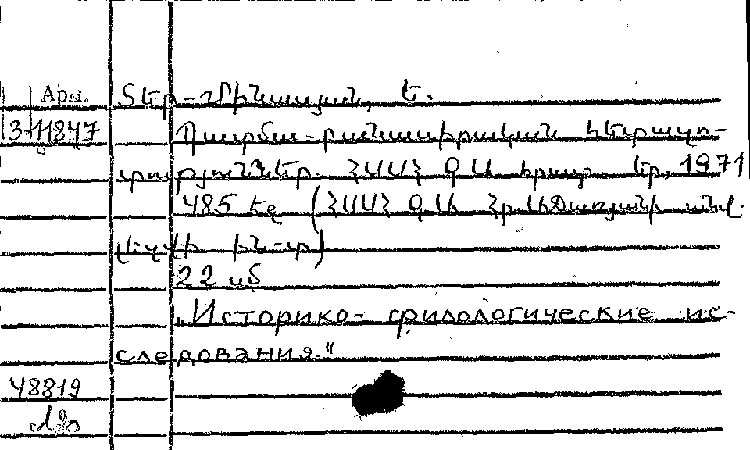 Арм. Տեր-Մինասյան, Ե.
3-11847 Պատմա-բանասիրական հետազո-
տություններ. ՀՍՍՀ ԳԱ հրատ. Եր, 1971
485 էջ (ՀՍՍՀ ԳԱ Հր. Աճառյանի անվ.
լեզվի ին-տ)
22 սմ
"Историко-филологические ис-
следования."
48819